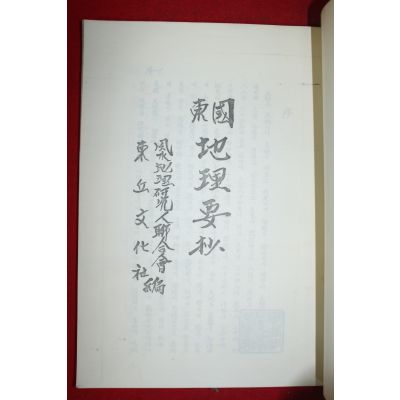 東國
地理要抄
風水地理研究人聯合會
東丘文化社
編